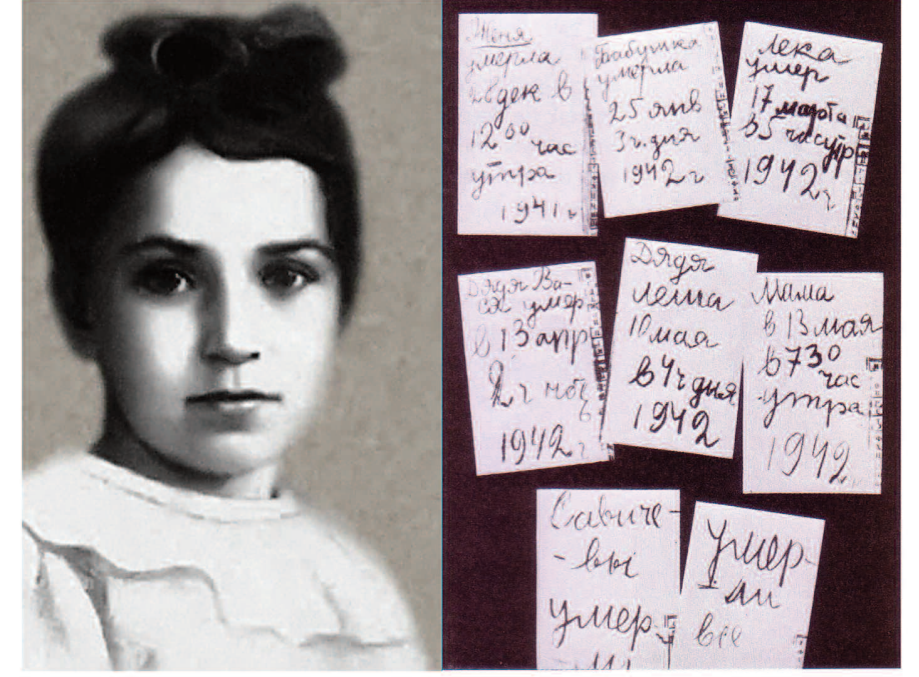 Женя
умерла
28 дек в
12 00 час
утра
1941 г
Бабушка
умерла
25 янв
3 ч. дня
1942 г
Лека
умер
17 марта
в 5 часутр
1942 г
Дядя Ва-
ся умер
в 13 апр
2 ч ночь
1942 г
Дядя
Леша
10 мая
в 4 ч дня
1942
Мама
в 13 мая
в 7 30
час
утра
1942
Савиче-
-вы
умер
ли
Умер
ли
все